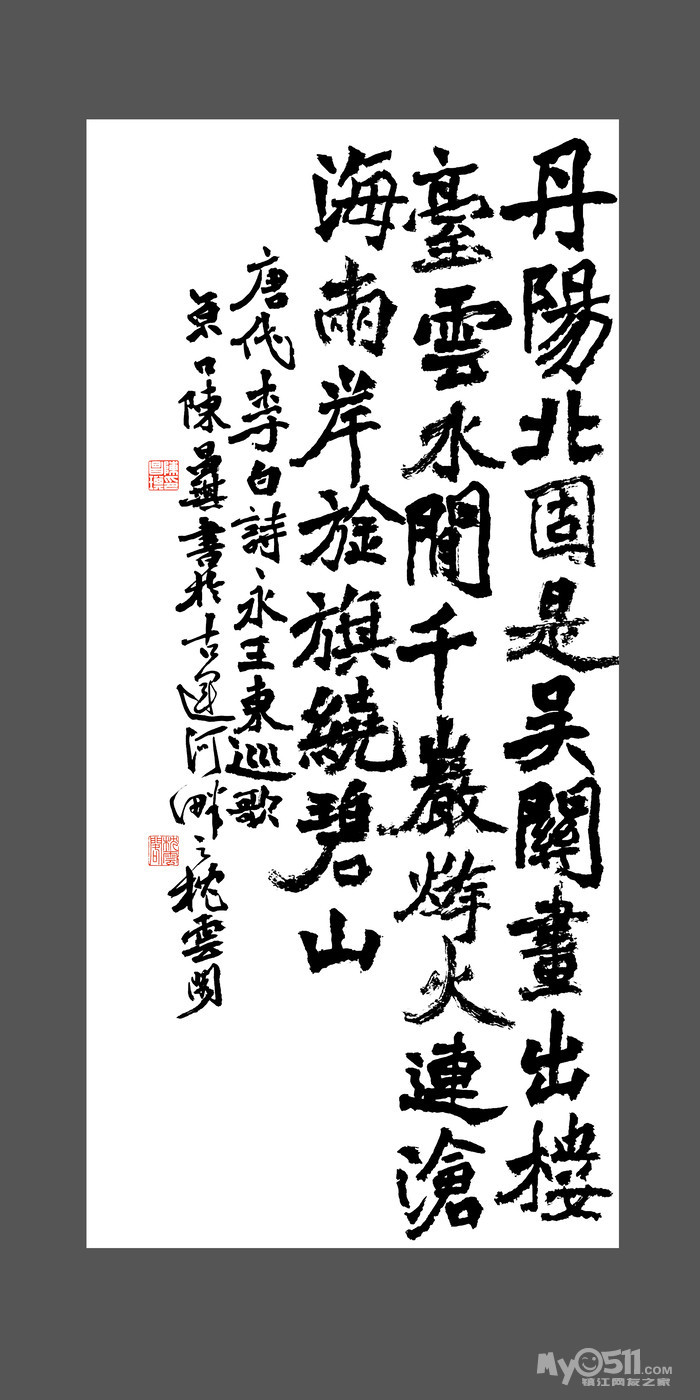 丹陽北固是吴關畫出樓
臺雲水間千巖烽火連滄
海兩岸旌旗繞碧山
唐代李白詩永王東巡歌
京口陳書於古運河畔之枕雲閣
My0511.COM
镇江网友之家